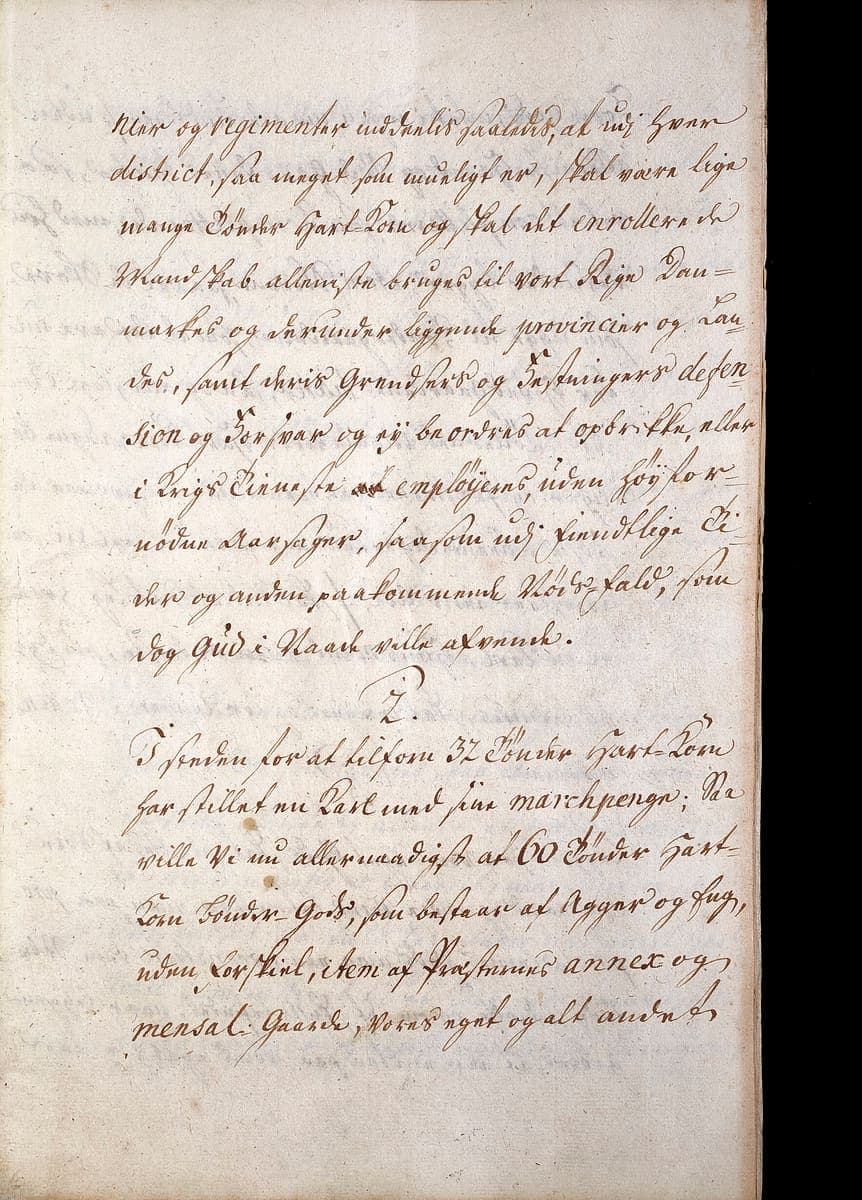 nier og regimenter inddeelis saaledis, at udj hver
district, saa meget som mueligt er, skal være lige
mange Tønder Hart-Korn og skal det enrollerede
Mandskab alleniste bruges til vort Rige Dan=
markes og derunder liggende provincier og Lan=
des, samt deris Grendsers og Festningers defen=
sion og Forsvar og ej beordres at opbrikke, eller
i Krigs Tieneste employeres, uden høyfor=
nødne Aarsager, saasom udj fiendtlige Ti=
der og anden paakommende Nøds-fald, som
dog Gud i Naade ville afvende.
2.
I steden for at tilforn 32 Tønder Hart-Korn
har stillet en Karl med sine marchpenge; Saa
ville Vi nu allernaadigst at 60 Tønder Hart-
Korn Bønder-Gods, som bestaar af Agger og Eng,
uden forskiel, item af Præsternes annex og
mensal-Gaarde, vores eget og alt andet